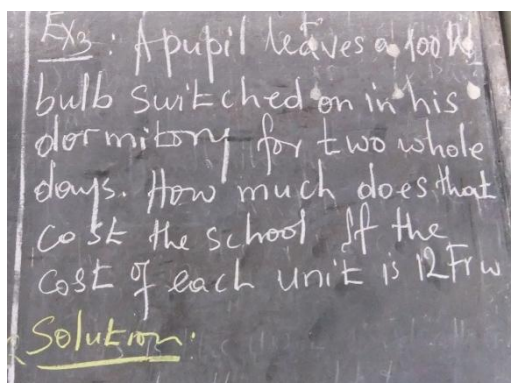 Ex3: A pupil leaves a 100W
bulb switched on in his
dormitory for two whole
days. How much does that
cost the school If the
cost of each unit is 12Frw
Solution: